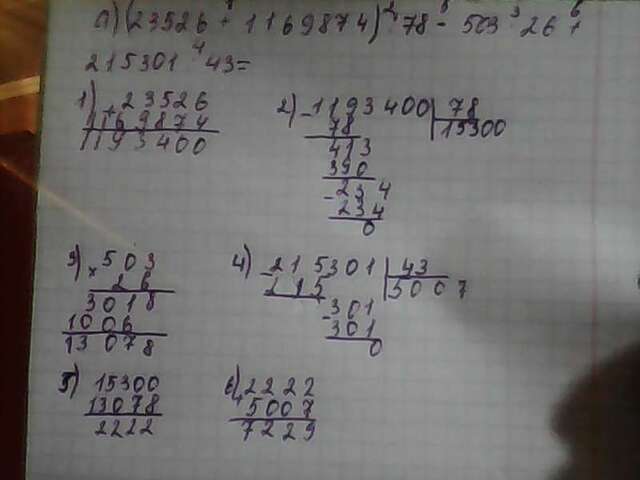 а) (23526 + 1169874) : 78 - 503 · 26 +
215301 : 43 =
1) + 23526
1169874
1193400
2) - 1193400 | 78
78 | 15300
413
390
- 234
234
0
3) × 503
26
3018
1006
13078
4) - 215301 | 43
215 | 5007
- 301
301
0
5) 15300
13078
2222
6) + 2222
5007
7229